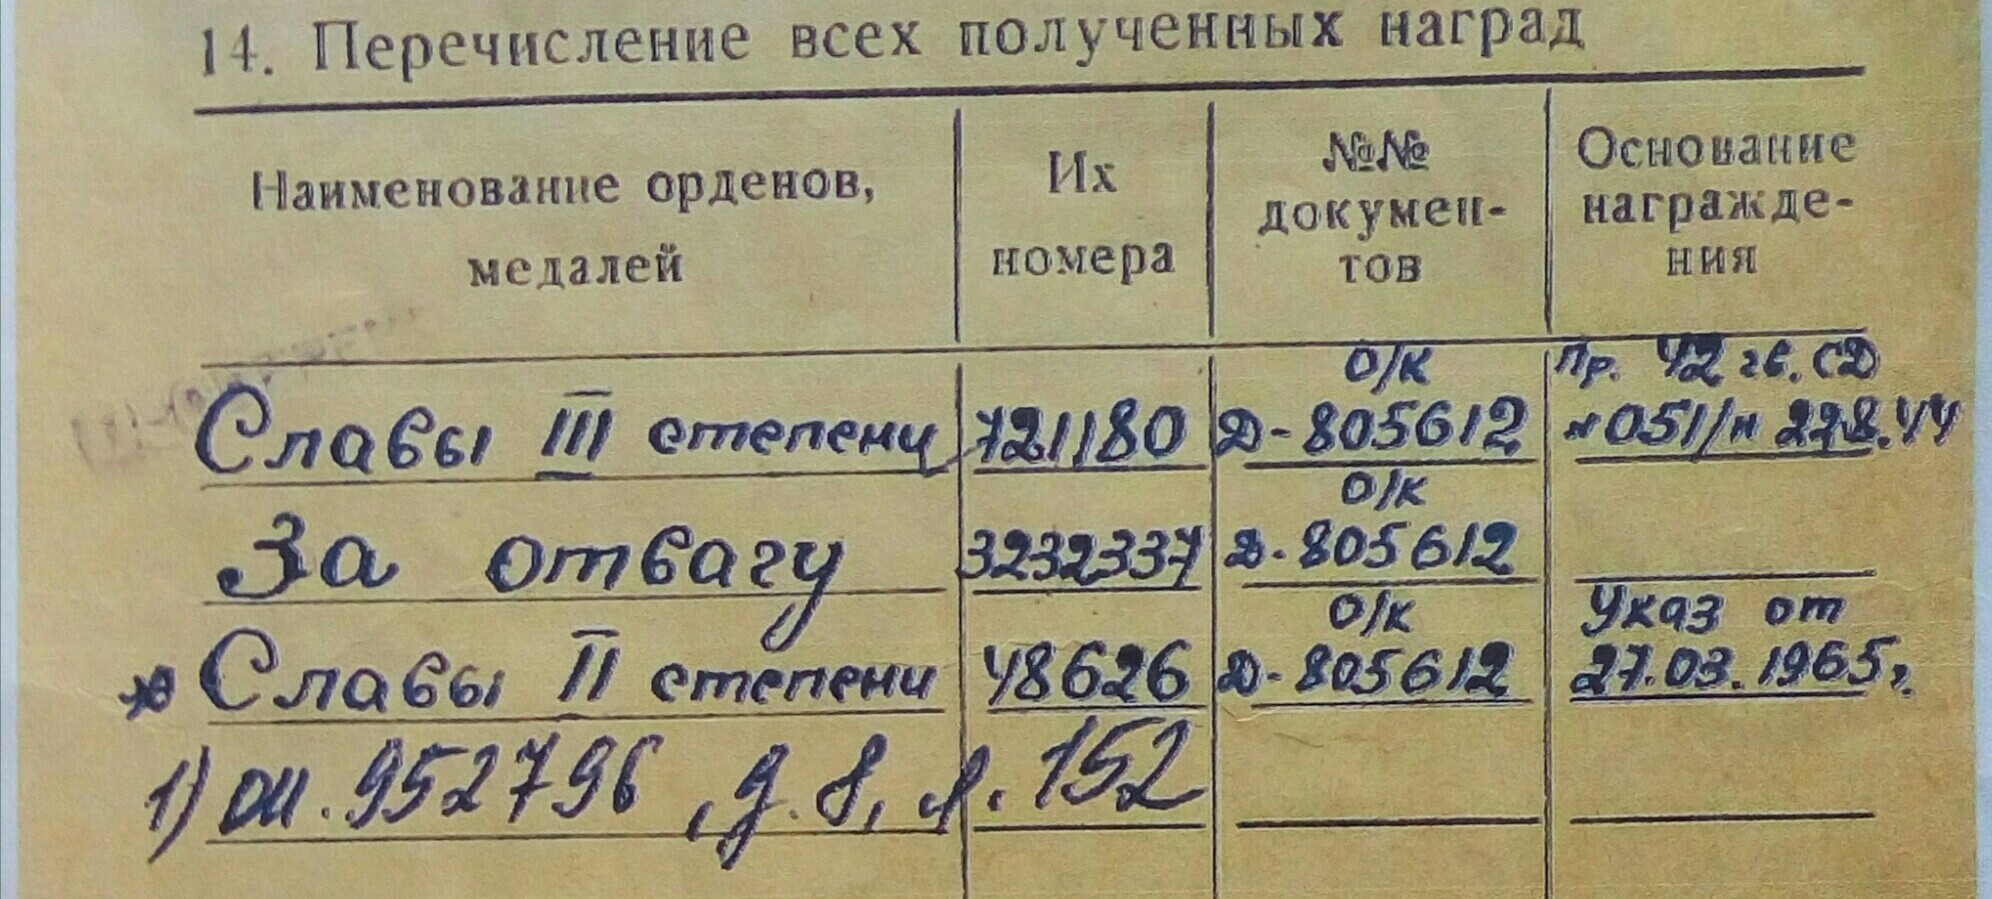 14. Перечисление всех полученных наград
Наименование орденов, медалей
Их номера
№№ докумен-
тов
Основание
награжде-
ния
О/К
Пр. 42 гв. СД
Славы III степени 721180 Д-805612 №051/н 22.8.44
О/К
За отвагу 3232337 Д-805612
О/К
Указ от
Славы II степени 48626 Д-805612 27.03.1965г.
1) оп. 952796, д. 8, л. 152